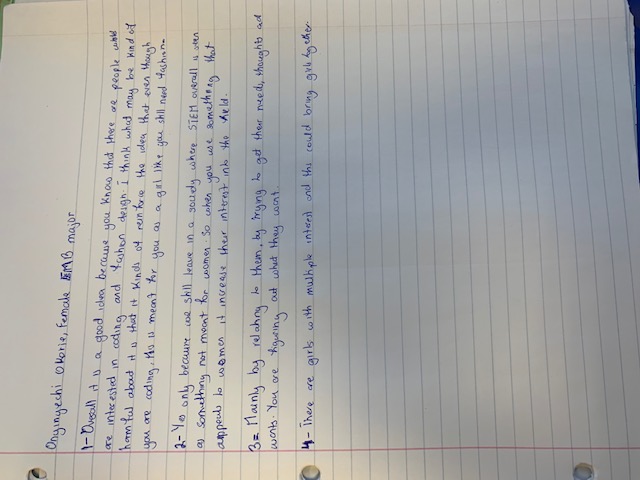 Onyinyechi Okorie, Female EMB major
1- Overall it is a good idea because you know that there are people who
are interested in coding and fashion design. I think what may be kind of
harmful about it is that it kinds of reinforce the idea that even though
you are coding, this is meant for you as a girl like you still need fashion.
2- Yes only because we still leave in a society where STEM overall is seen
as something not meant for women. So when you use something that
appeals to women it increase their interest into the field.
3= Mainly by relating to them, by trying to get their need, thoughts ad
wants. You are figuring out what they want.
4- There are girls with multiple interest and this could bring girls together.